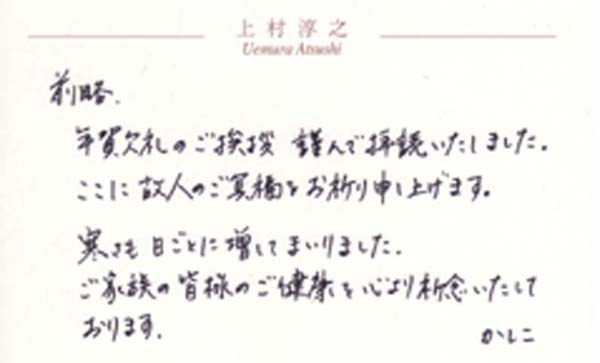 上村淳之
Uemura Atsushi
前略.
年賀欠礼のご挨拶 謹んで拝読いたしました.
ここに故人のご冥福をお祈り申し上げます.
寒さも日ごとに増してまいりました.
ご家族の皆様のご健康を心より祈念いたして
おります.
かしこ